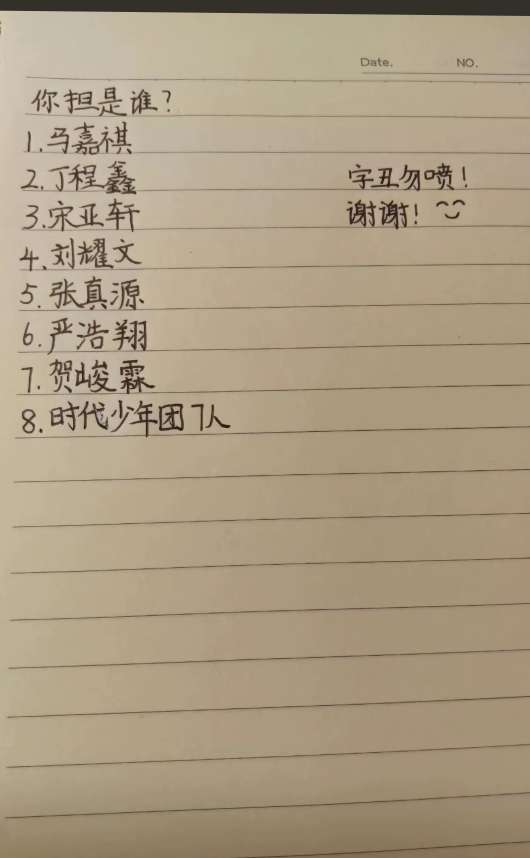 Date. NO.
你担是谁?
1.马嘉祺
2.丁程鑫
3.宋亚轩
4.刘耀文
5.张真源
6.严浩翔
7.贺峻霖
8.时代少年团7人
字丑勿喷!
谢谢!